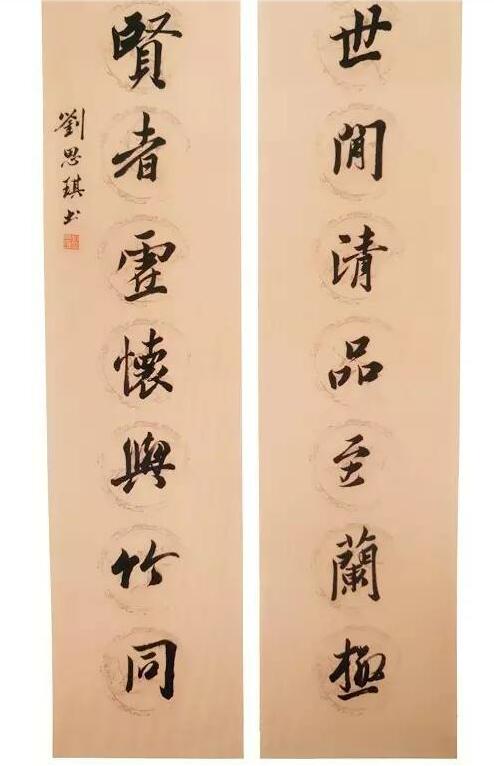 世閒清品至蘭極
賢者虛懷與竹同
劉思琪书